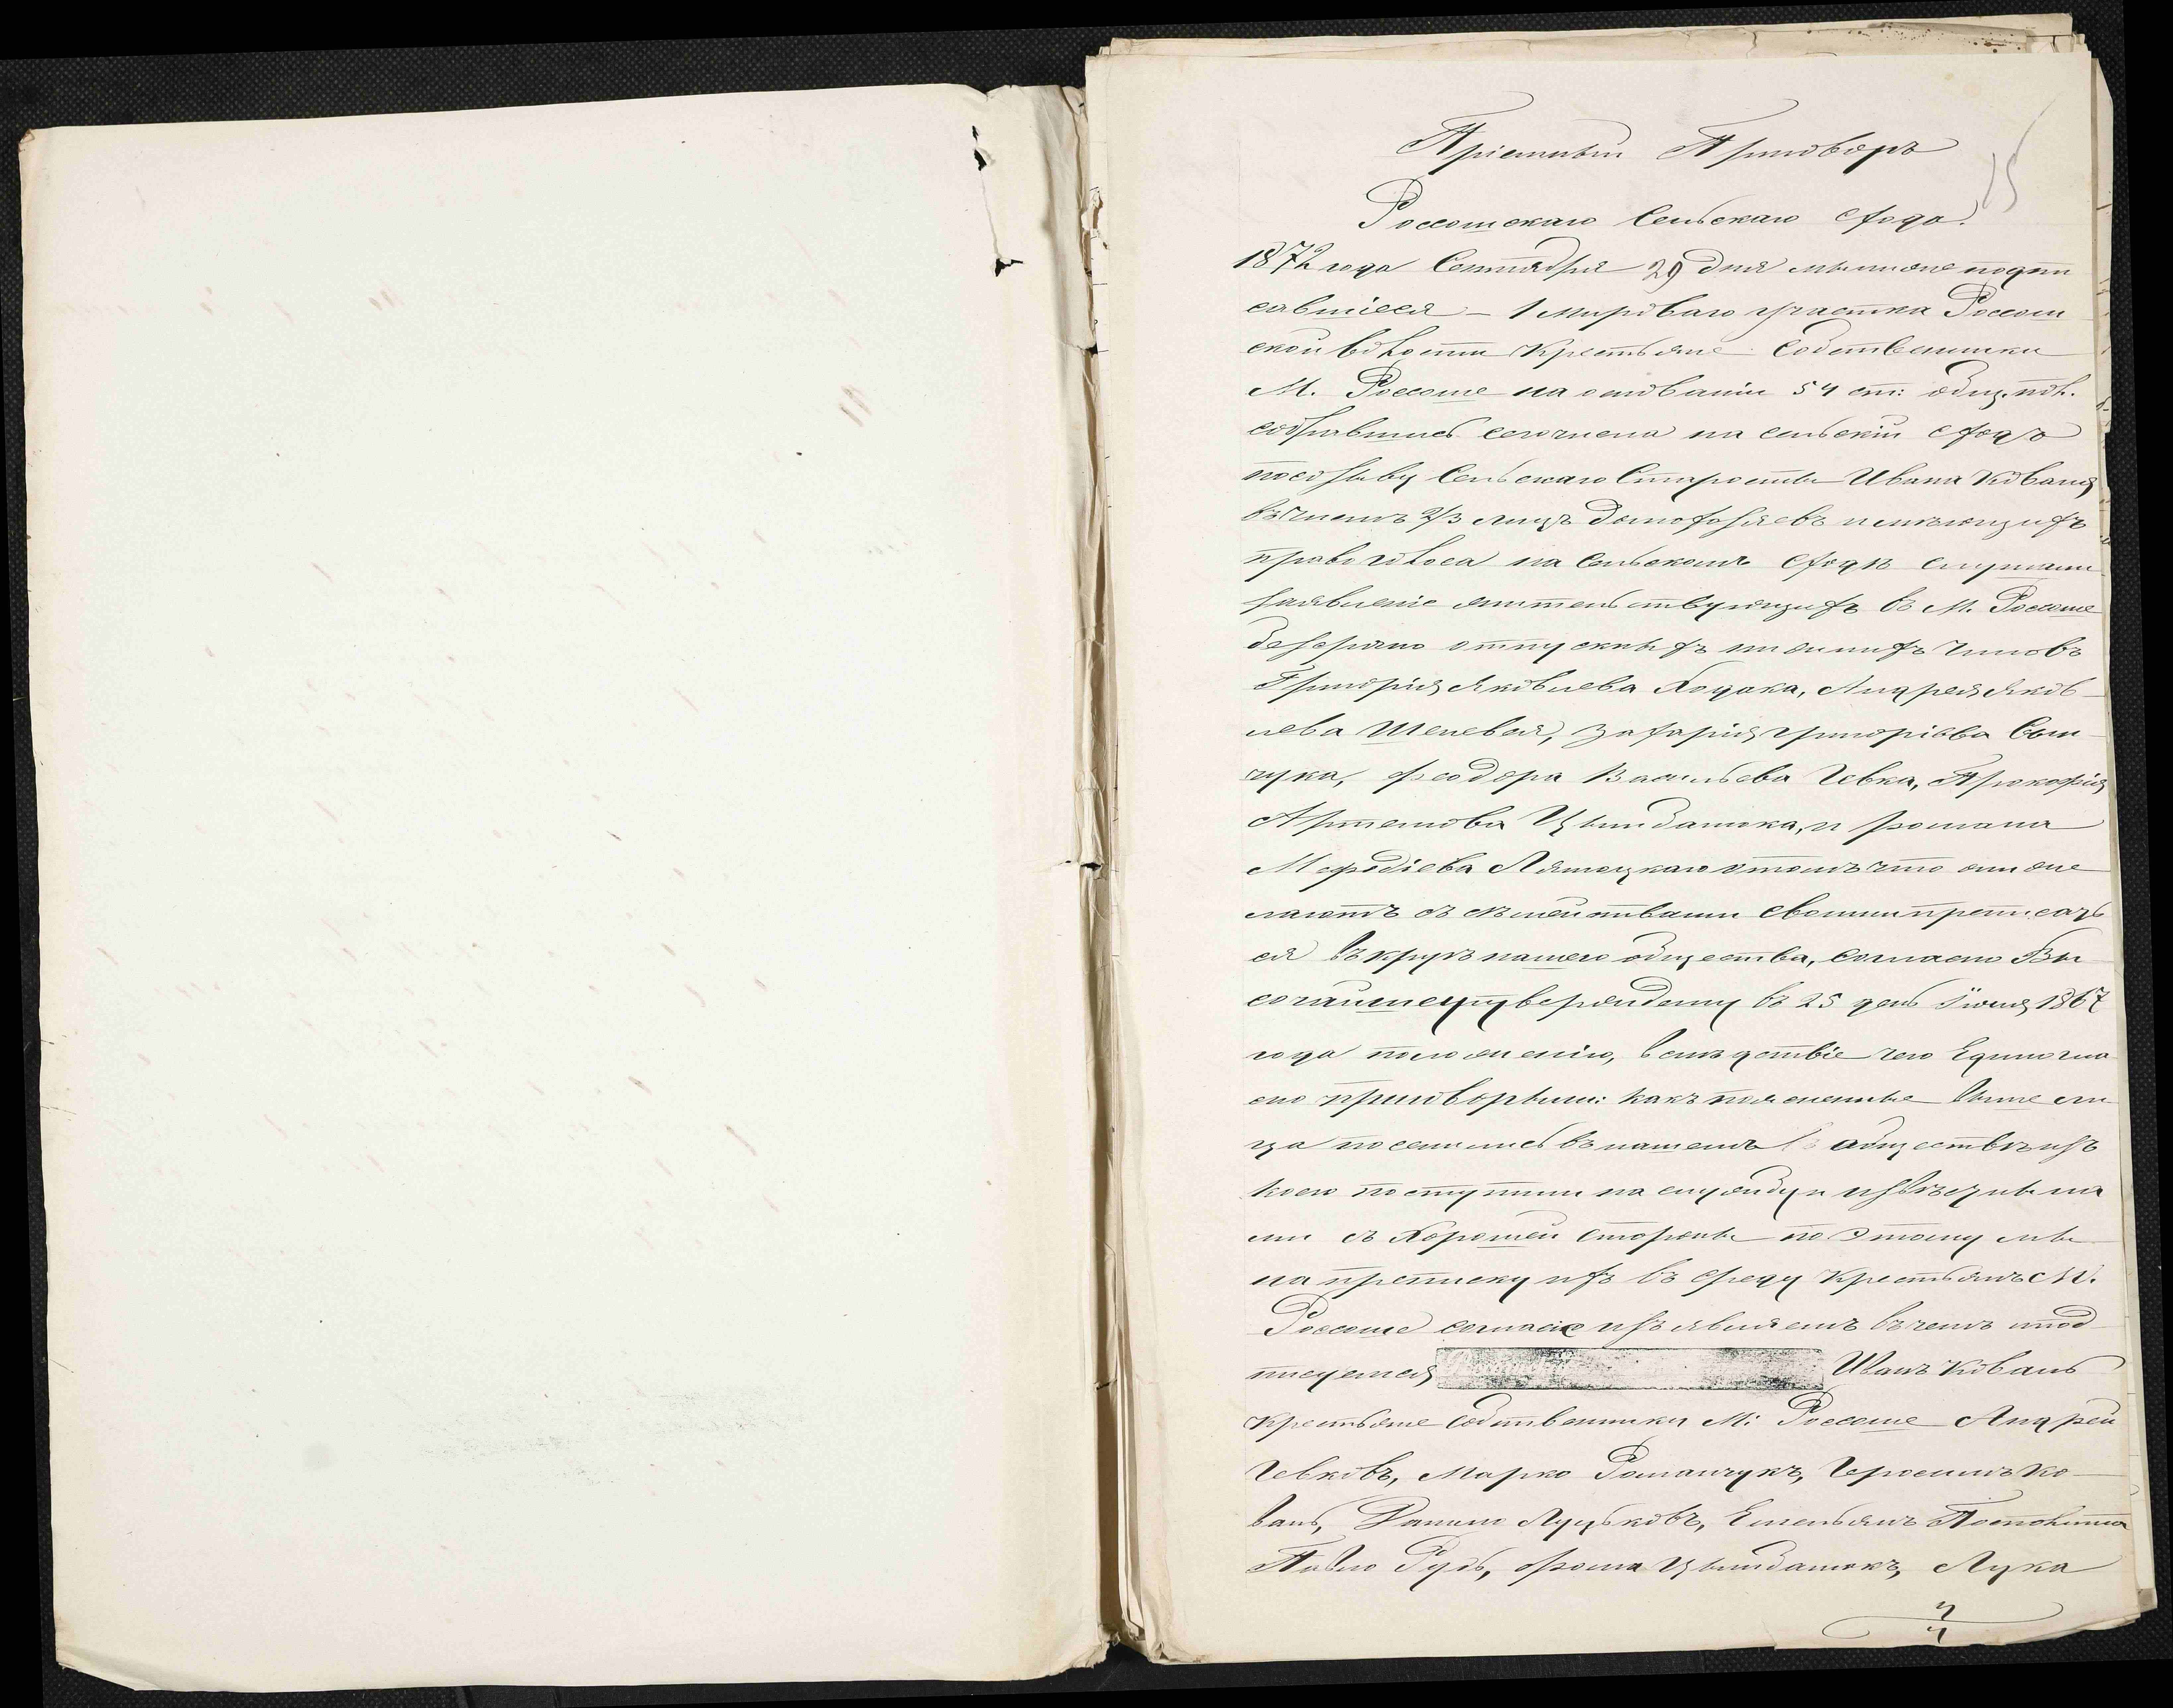 Пріемный Приговоръ
15
Россошскаго Сельскаго Схода.
1872 года Сентября 29 дня мы ниже подпи
савшіеся – 1 Мироваго участка Россош
ской волости Крестьяне Собственники
М. Россоше на основаніи 54 ст: общ. пол.
собравшись сего числа на сельскій сходъ
по созыву Сельскаго Старосты Ивана Коваля
въ числѣ 2/3 лицъ домохозяевъ имѣющихъ
право голоса на Сельскомъ сходѣ слушали
заявленіе жительствующихъ въ М. Россоше
безсрочно отпускныхъ нижнихъ чиновъ
Григорія Яковлева Ходака, Андрея Яков
лева Шелевея, Захарія Григоріева Сви
чука, Феодора Васильева Чевка, Прокофія
Артемова Цымбалюка, и романа
Мефодіева Лятецкаго о томъ что они же
лаютъ съ сѣмействами своими преписать
ся въ кругъ нашего общества, согласно Вы
сочайше утвержденому въ 25 день Іюня 1867
года положенію, вслѣдствіе чего Единоглас
но приговорили: какъ поясненные выше ли
ца поселились въ нашемъ обществѣ изъ
коего поступили на службу и извѣстны на
ми съ Хорошей стороны по этому мы
на преписку ихъ въ среду крестьянъ М.
Россоше согласіе изъявляемъ въ чемъ и под
писуемся Иванъ Коваль
Крестьяне Собственники М: Россоше Андрей
Чевковъ, Марко Романчукъ, Герасимъ Ко
валь, Данило Луцьковъ, Емельянъ
Павло Рудь, Фома Цымбалюкъ, Лука